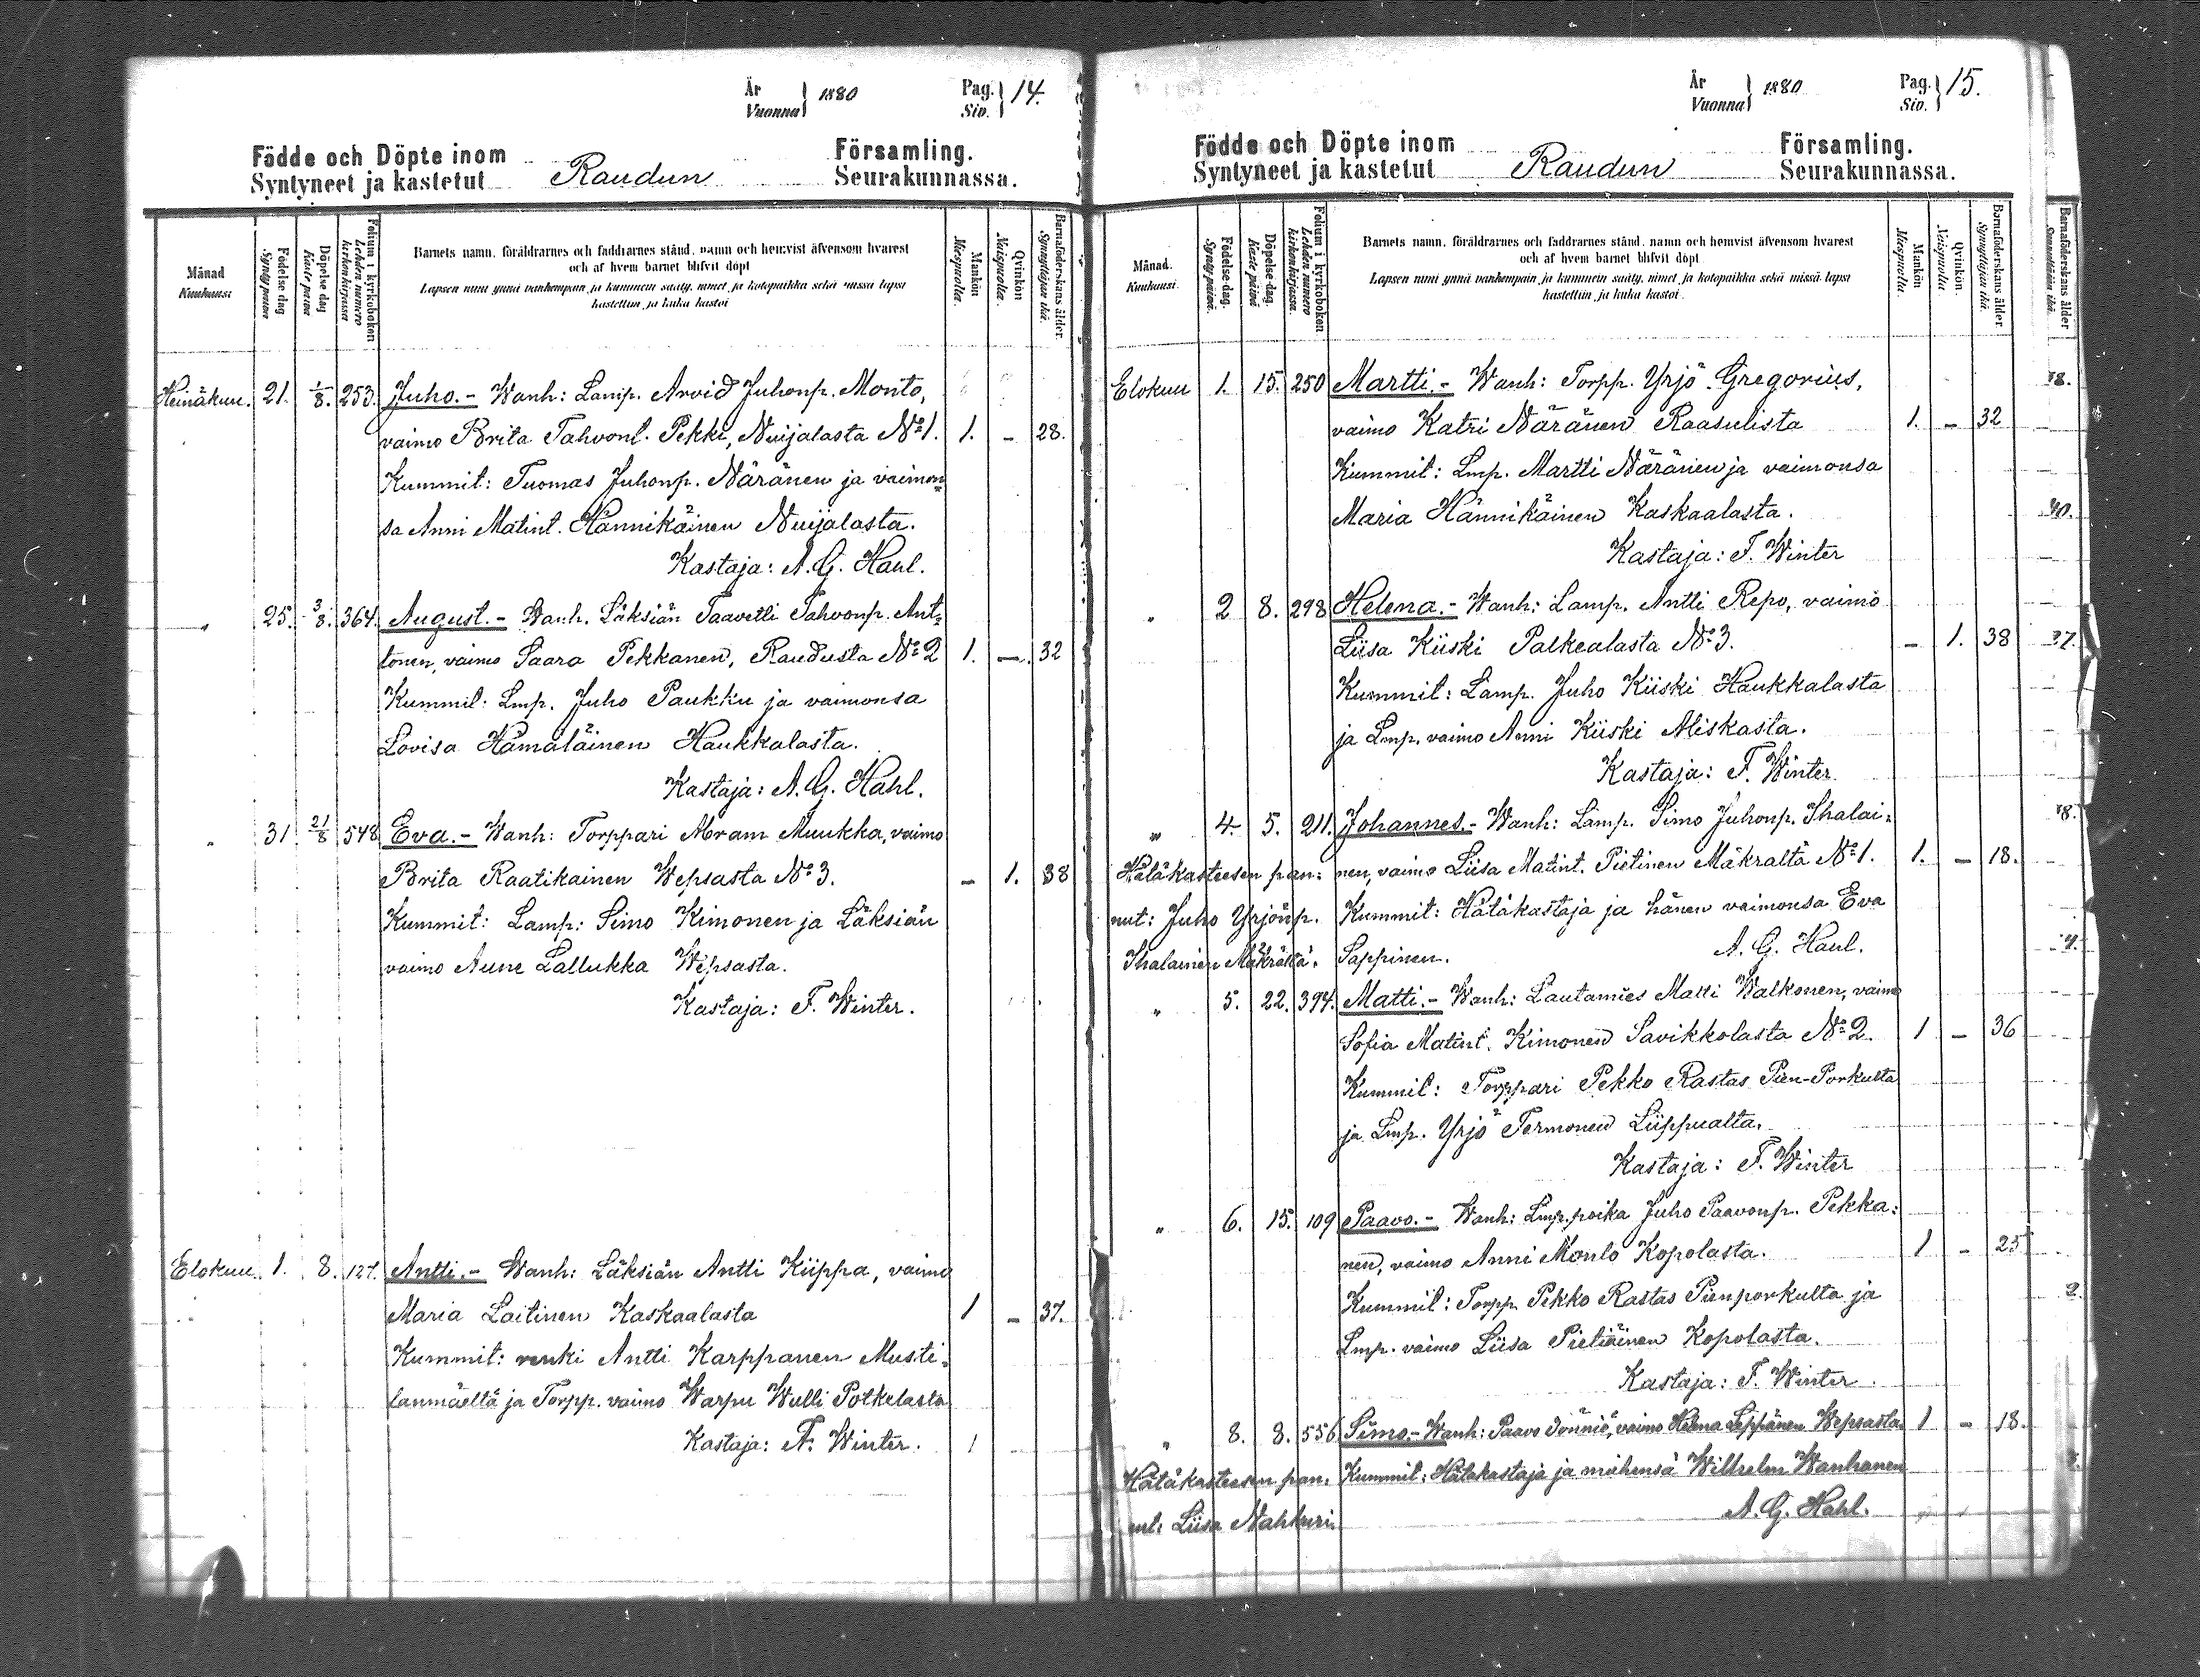 År Vuonna } 1880 Pag. Siv. } 14.
Födde och Döpte inom Församling.
Syntyneet ja kastetut Raudun Seurakunnassa.
Månad Kuukausi
Födelse dag Synty päivä
Döpelse dag Kaste päivä
Folium i kyrkoboken Lehden numero kirkonkirjassa
Barnets namn, föräldrarnes och faddrarnes stånd, namn och hemvist äfvensom hvarest
och af hvem barnet blifvit döpt
Lapsen nimi ynnä vanhempain ja kummein sääty, nimet ja kotopaikka sekä missä lapsi
kastettiin ja kuka kastoi
Mankön Miespuolia.
Qvinkön Naispuolia.
Barnaföderskans ålder. Synnyttäjän ikä.
Heinäkuu. 21. 1/8. 253. Juho.- Wanh: Lamp. Arvid Juhonp. Monto,
vaimo Brita Tahvont. Pekki, Nuijalasta No 1. 1. - 28.
Kummit: Tuomas Juhonp. Näränen ja vaimon=
sa Anni Matint. Hännikäinen Nuijalasta.
Kastaja: A. G. Hahl.
„ 25. 3/8. 364. August.- Wanh. Läksiän Taavetti Tahvonp. Ant=
tonen, vaimo Saara Pekkanen, Raudusta No 2 1. -. 32
Kummit: Lmp. Juho Paukku ja vaimonsa
Lovisa Hämäläinen Haukkalasta.
Kastaja: A. G. Hahl.
„ 31 21/8 548 Eva.- Wanh: Torppari Abram Muukka, vaimo
Brita Raatikainen Wepsasta No 3. - 1. 38
Kummit: Lamp: Simo Kimonen ja Läksiän
vaimo Aune Lallukka Wepsasta.
Kastaja: F. Winter.
Elokuu. 1. 8. 127. Antti.- Wanh: Läksiän Antti Kiippa, vaimo
Maria Laitinen Kaskaalasta 1 - 37.
Kummit: renki Antti Karppanen Musti=
lanmäeltä ja Torpp. vaimo Warpu Wulli Potkelasta
Kastaja: F. Winter.
År Vuonna } 1880 Pag. Siv. } 15.
Födde och Döpte inom Församling.
Syntyneet ja kastetut Raudun Seurakunnassa.
Månad. Kuukausi.
Födelse-dag. Synty päivä.
Döpelse-dag. Kaste päivä
Folium i kyrkoboken Lehden numero kirkonkirjassa.
Barnets namn, föräldrarnes och faddrarnes stånd, namn och hemvist äfvensom hvarest
och af hvem barnet blifvit döpt
Lapsen nimi ynnä vanhempain ja kummein sääty, nimet ja kotopaikka sekä missä lapsi
kastettiin ja kuka kastoi.
Mankön Miespuolia.
Qvinkön. Naispuolia
Barnaföderskans ålder. Synnyttäjän ikä.
Barnaföderskans ålder Synnyttäjän ikä.
Elokuu 1. 15. 250 Martti.- Wanh: Torpp. Yrjö Gregorius,
vaimo Katri Näränen Raasulista 1. - 32
Kummit: Lmp. Martti Näränen ja vaimonsa
Maria Hännikäinen Kaskaalasta.
Kastaja: F. Winter
„ 2 8. 298 Helena.- Wanh: Lamp. Antti Repo, vaimo
Liisa Kiiski Palkealasta No 3. - 1. 38
Kummit: Lamp. Juho Kiiski Haukkalasta
ja Lmp. vaimo Anni Kiiski Miskasta.
Kastaja: F. Winter.
„ 4 5. 211. Johannes.- Wanh: Lamp. Simo Juhonp. Ihalai=
Hätäkasteesen pan= nen, vaimo Liisa Matint. Pietinen Mäkrältä No 1. 1. - 18.
nut: Juho Yrjönp. Kummit: Hätäkastaja ja hänen vaimonsa Eva
Ihalainen Mäkrältä. Sappinen. A. G. Hahl.
„ 5. 22. 394. Matti.- Wanh: Lautamies Matti Walkonen, vaimo
Sofia Matint. Kimonen Savikkolasta No 2. 1 - 36
Kummit: Torppari Pekko Rastas Pien-Porkusta
ja Lmp. Yrjö Termonen Liippualta.
Kastaja: F. Winter
„ 6. 15. 109 Paavo.- Wanh: Lmp. poika Juho Paavonp. Pekka=
nen, vaimo Anni Monto Kopolasta. 1 - 25
Kummit: Torpp Pekko Rastas Pienporkulta ja
Lmp. vaimo Liisa Pietiäinen Kopolasta.
Kastaja: F. Winter.
„ 8. 8. 556 Simo.- Wanh: Paavo Jönniö, vaimo Helena Leppänen Wepsasta 1 - 18.
Hätäkasteesen pan= Kummit: Hätäkastaja ja miehensä Wilhelm Wanhanen
nut: Liisa Nahkuri. A. G. Hahl.